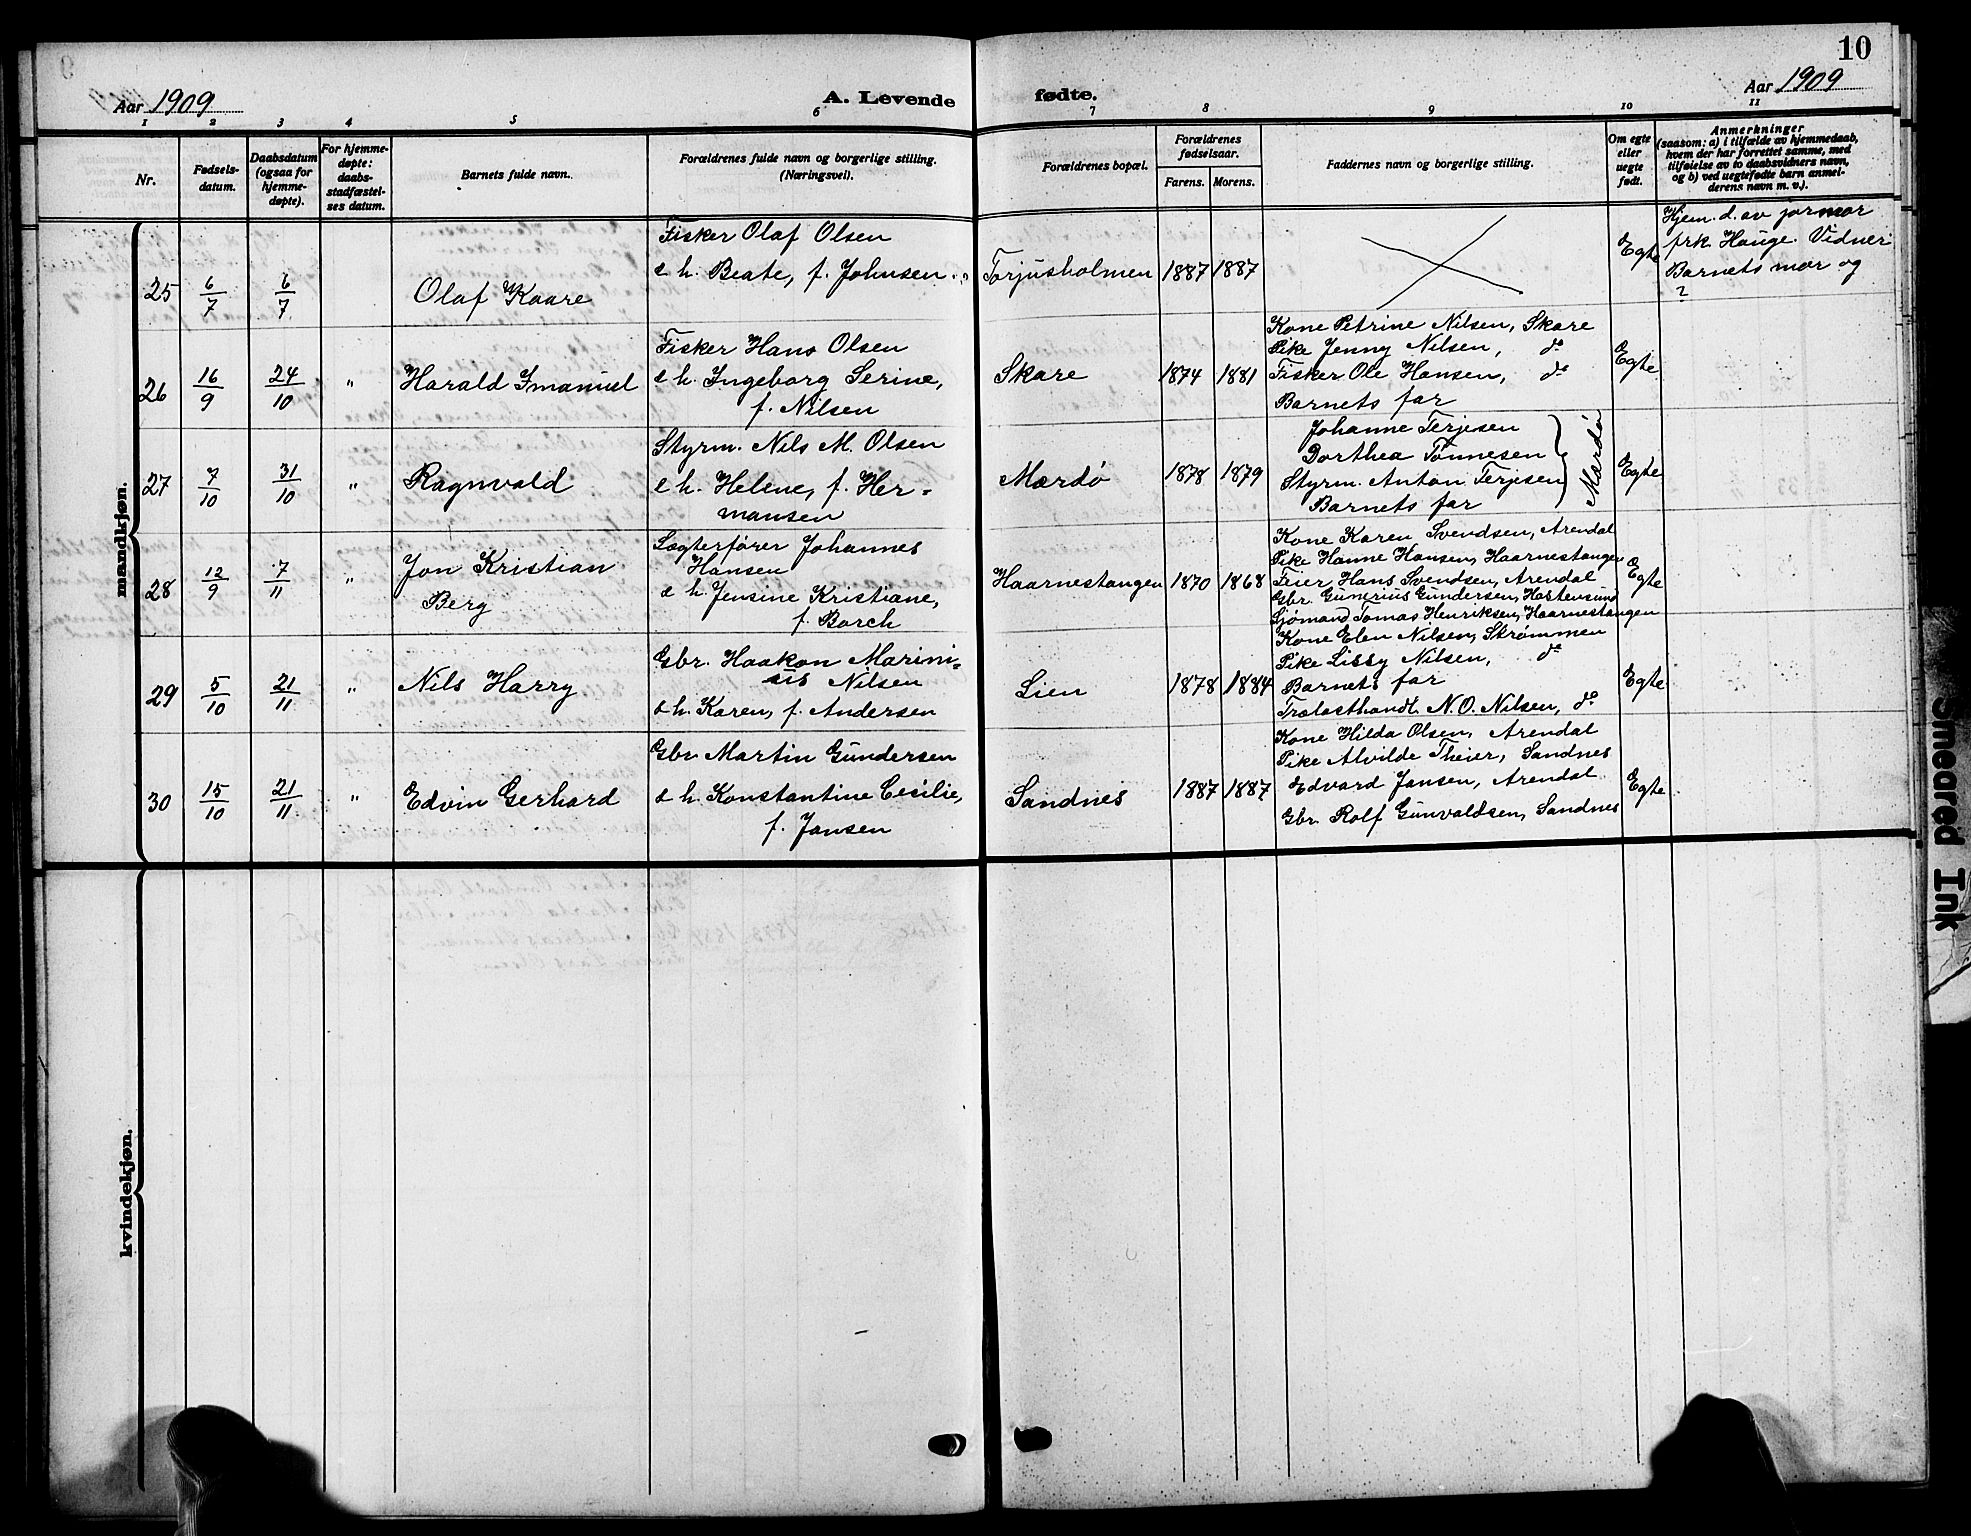 10
Aar 1909
A. Levende fødte.
Aar 1909
1 2 3 4 5 6 7 8 9 10 11
Nr.
Fødsels-
datum.
Daabsdatum
(ogsaa for
hjemme-
døpte).
For hjemme-
døpte:
daabs-
stadfæstel-
ses datum.
Barnets fulde navn.
Forældrenes fulde navn og borgerlige stilling.
(Næringsvei).
Forældrenes bopæl.
Forældrenes
fødselsaar.
Farens. Morens.
Faddernes navn og borgerlige stilling.
Om egte
eller
uegte
født.
Anmerkninger
(saasom: a) i tilfælde av hjemmedaab,
hvem der har forrettet samme, med
tilføielse av to daabsvidners navn,
og b) ved uegtefødte barn anmel-
derens navn m. v.).
mandkjøn.
25
6/7
6/7
"
Olaf Kaare
Fisker Olaf Olsen
e. h. Beate, f. Johnsen
Torjusholmen
1887 1887
Egte
Hjem. d. av jormor
frk Hauge. Vidner
Barnets mor og
?
26
16/9
24/10
"
Harald Imanuel
Fisker Hans Olsen
e. h. Ingeborg Serine,
f. Nilsen
Skare
1874 1881
Kone Petrine Nilsen, Skare
Pike Jenny Nilsen, do
Fisker Ole Hansen, do
Barnets far
Egte
27
7/10
31/10
"
Ragnvald
Styrm. Nils M. Olsen
e. h. Helene, f. Her-
mansen
Mærdö
1878 1879
Johanne Terjesen
Dorthea Tönnesen
Styrm. Anton Terjesen
Barnets far
Mærdö
Egte
28
12/9
7/11
"
Jon Kristian
Berg
Lægterförer Johannes
Hansen
e. h. Jensine Kristiane,
f. Borch
Haarnestangen
1870 1868
Kone Karen Svendsen, Arendal
Pike Hanne Hansen, Haarnestangen
Feier Hans Svendsen, Arendal
Gbr. Gumerius Gundersen, Hastensund
Sjömand Tomas Henriksen, Haarnestangen
Egte
29
5/10
21/11
"
Nils Harry
Gbr. Haakon Marini-
us Nilsen
e. h. Karen, f. Andersen
Lien
1878 1884
Kone Elen Nilsen, Strømmen
Pike Lissy Nilsen, do
Barnets far
Trælasthandl. N. O. Nilsen, do
Egte
30
15/10
21/11
"
Edvin Gerhard
Gbr. Martin Gundersen
e. h. Konstantine Cecilie,
f. Jansen
Sandnes
1887 1887
Kone Hilda Olsen, Arendal
Pike Alvilde Theier, Sandnes
Edvard Jansen, Arendal
Gbr. Rolf Gunvaldsen, Sandnes
Egte
kvindekjøn.
Smeared Ink